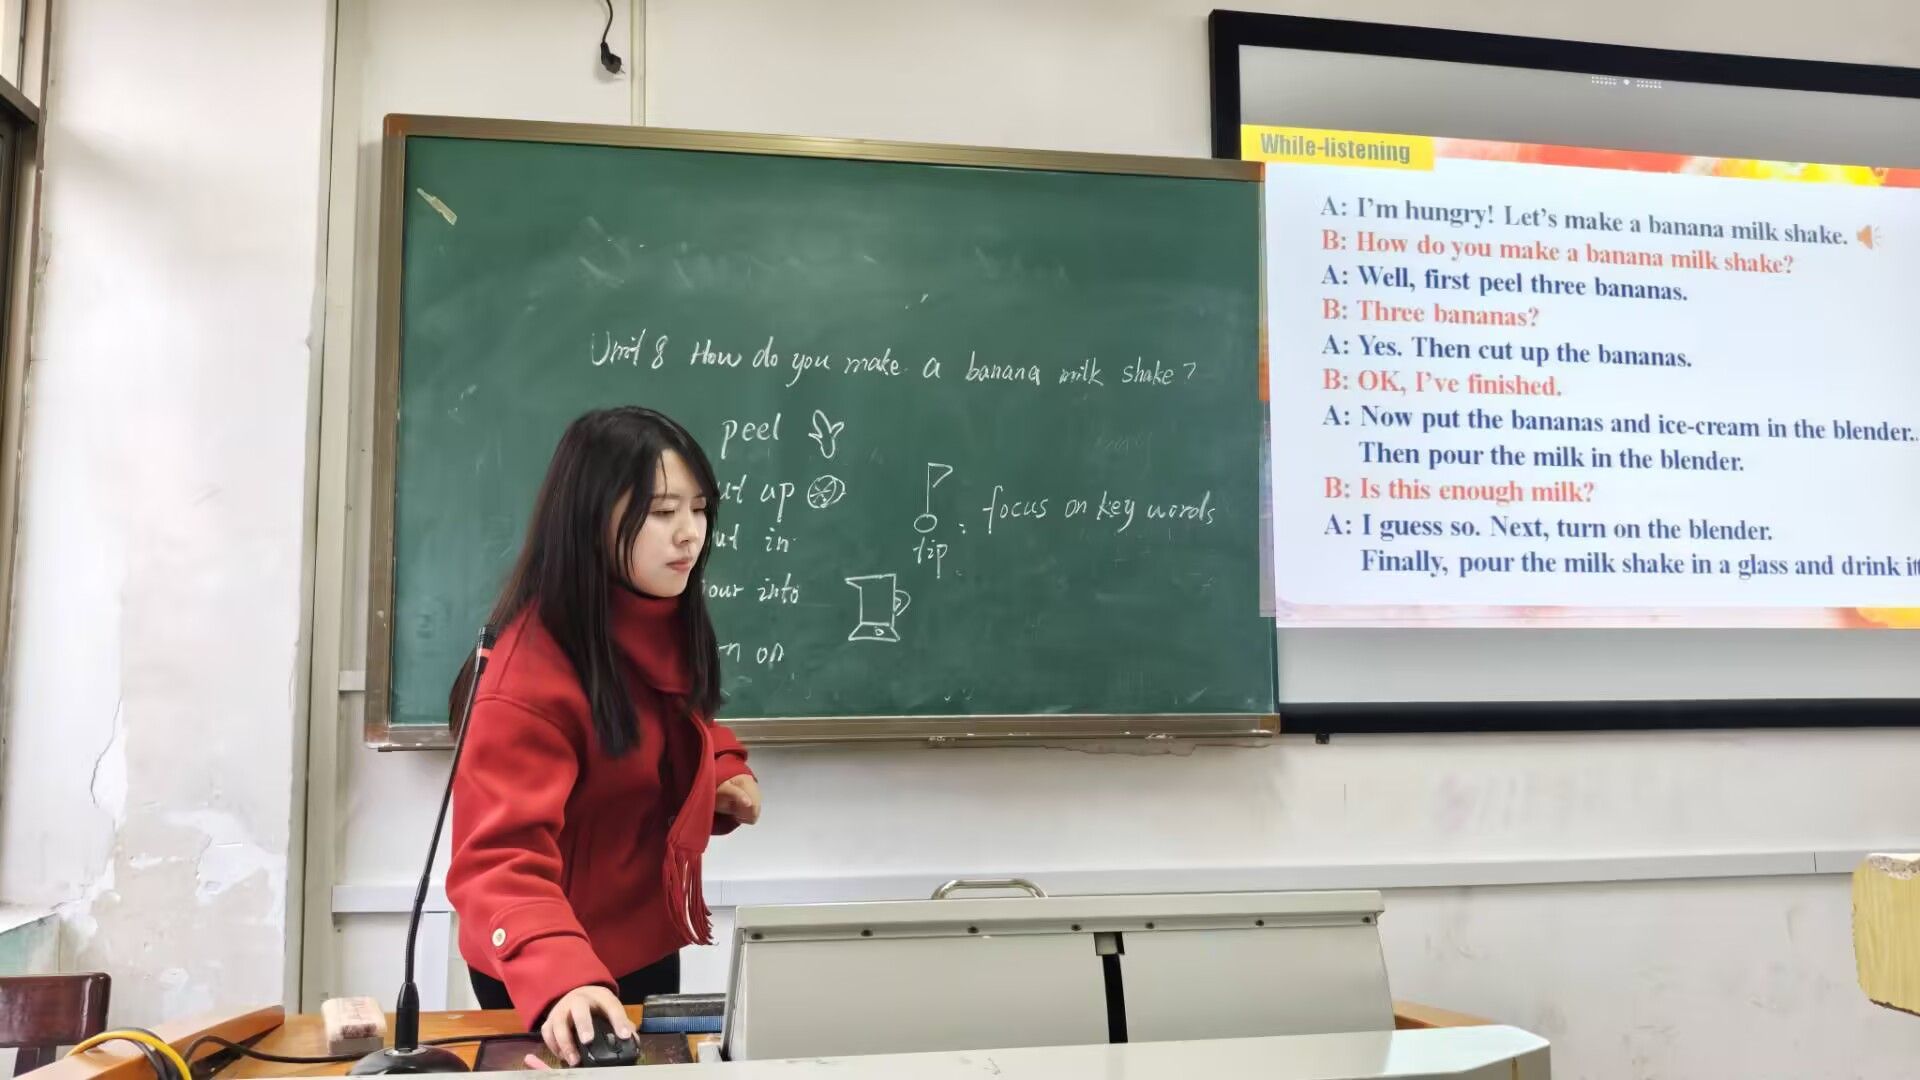 Unit 8 How do you make a banana milk shake?
peel
ut up
ut in
our into
n on
tip: focus on key words
While-listening
A: I'm hungry! Let's make a banana milk shake.
B: How do you make a banana milk shake?
A: Well, first peel three bananas.
B: Three bananas?
A: Yes. Then cut up the bananas.
B: OK, I've finished.
A: Now put the bananas and ice-cream in the blender.
Then pour the milk in the blender.
B: Is this enough milk?
A: I guess so. Next, turn on the blender.
Finally, pour the milk shake in a glass and drink it